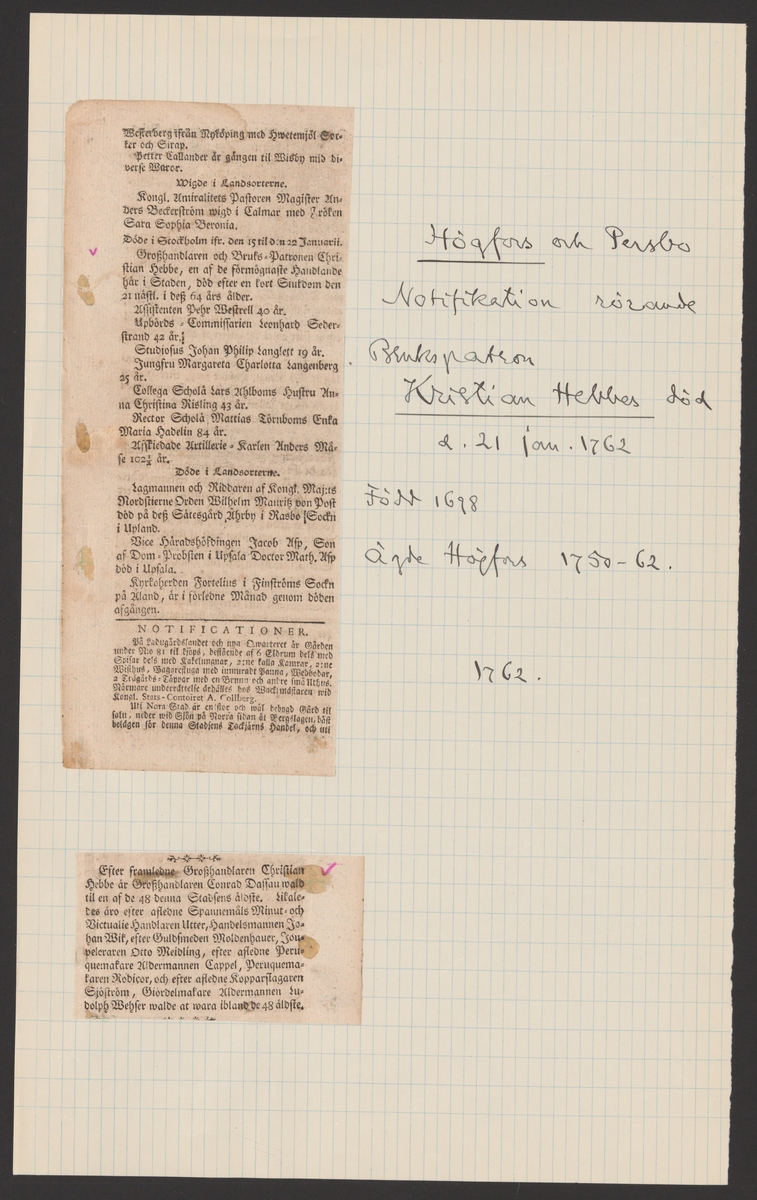 Westerberg ifrån Nyköping med Hwetemjöl Soc-
ker och Sirap.
Petter Callander är gången til Wisby mid di-
verse Waror.
Wigde i Landsorterne.
Kongl. Amiralitets Pastoren Magister An-
ders Beckerström wigd i Calmar med Fröken
Sara Sophia Beronia.
Döde i Stockholm ifr. den 15 til den 22 Januarii.
Großhandlaren och Bruks-Patronen Chri-
stian Hebbe, en af de förmögnaste Handlande
här i Staden, död efter en kort Siukdom den
21 nästl. i deß 64 års ålder.
Assistenten Pehr Westrell 40 år.
Upbörds-Commissarien Leonhard Seder-
strand 42 år.
Studiosus Johan Philip Langlett 19 år.
Jungfru Margareta Charlotta Langenberg
25 år.
Collega Scholä Lars Ahlboms Hustru An-
na Christina Risling 43 år.
Rector Scholä Mattias Törnboms Enka
Maria Hadelin 84 år.
Afskedade Artillerie-Karlen Anders Må-
se 102½ år.
Döde i Landsorterne.
Lagmannen och Riddaren af Kongl. Maj:ts
Nordstierne Orden Wilhelm Mauritz von Post
död på deß Sätesgård Ährby i Rasbo Sockn
i Upland.
Vice Häradshöfdingen Jacob Asp, Son
af Dom-Probsten i Upsala Doctor Math. Asp
död i Upsala.
Kyrkoherden Fortelius i Finströms Sockn
på Åland, är i förledne Månad genom döden
afgången.
NOTIFICATIONER.
På Ladugårdslandet och nya Qwarteret är Gården
under N:o 81 til kjöps, bestående af 6 Eldrum dels med
Spisar dels med Kakelungnar, 2:ne kalla Kamrar, 2:ne
Wisthus, Bagarestuga med inmurad Panna, Wedbodar,
2 Trägårds-Täpor med en Brunn och andre små Uthus.
Närmare underrättelse erhålles hos Wacktmästaren wid
Kongl. Stats-Contoiret A. Collberg.
Uti Nora Stad är en stor och wäl bebygd Gård til
salu, neder wid Sjön på Norra sidan åt Bergslagen, bäst
belägen för denna Stadsens Tackjärns Handel, och uti
Högfors och Persbo
Notifikation rörande
Brukspatron
Kristian Hebbes död
d. 21 jan. 1762
Född 1698
Ägde Högfors 1750-62.
1762.
Efter framledne Großhandlaren Christian
Hebbe är Großhandlaren Conrad Dassau wald
til en af de 48 denna Stadsens äldste. Likale-
des äro efter afledne Spannemåls Minut- och
Victualie Handlaren Utter, Handelsmannen Jo-
han Wik, efter Guldsmeden Moldenhauer, Jou-
veleraren Otto Meidling, efter afledne Peru-
quemakare Aldermannen Cappel, Peruquema-
karen Rodicor, och efter afledne Kopparslagaren
Sjöström, Giördelmakare Aldermannen Lu-
dolph Wehser walde at wara ibland de 48 äldste.